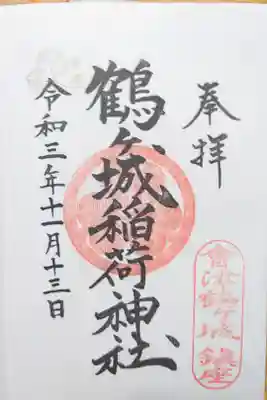 奉拝
鶴ヶ城稲荷神社
令和三年十一月十三日
會津鶴ヶ城鎮座